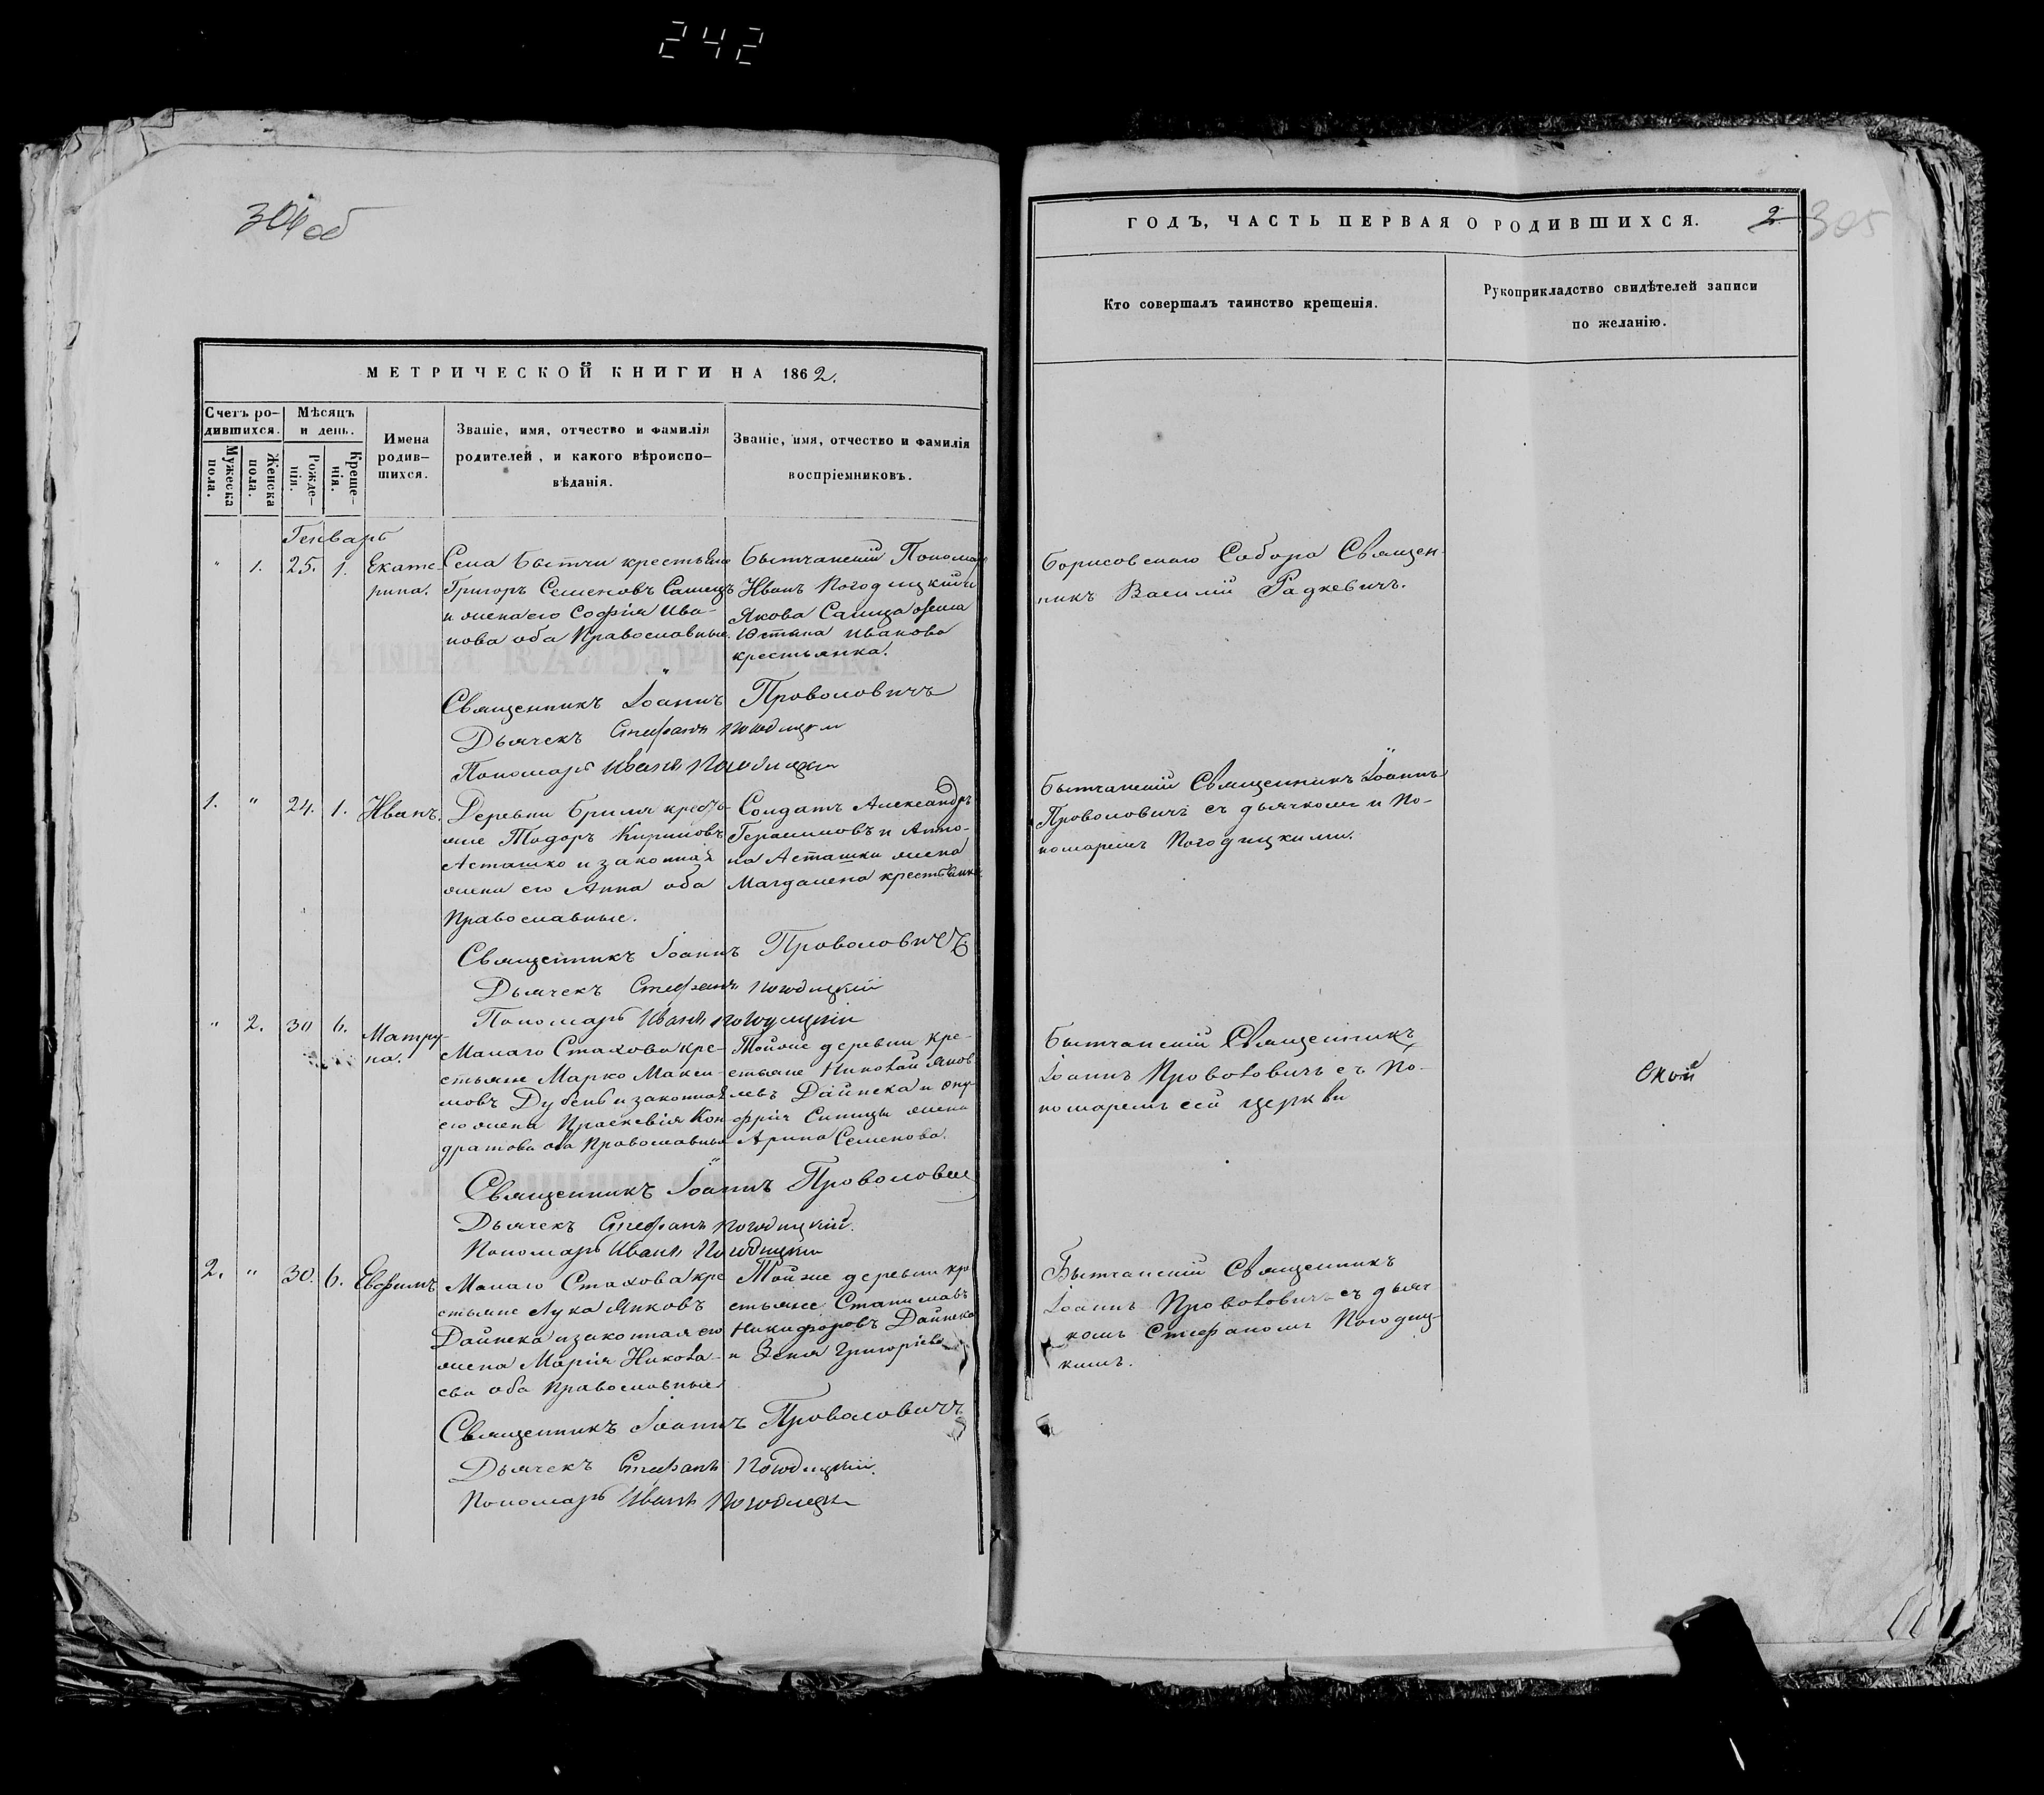 242
304 об
МЕТРИЧЕСКОЙ КНИГИ НА 1862.
Счетъ ро-
дившихся.
Мужеска
пола.
Женска
пола.
Мѣсяцъ
и день.
Рожде-
нія.
Креще-
нія.
Имена
родив-
шихся.
Званіе, имя, отчество и фамилія
родителей, и какого вѣроиспо-
вѣданія.
Званіе, имя, отчество и фамилія
воспріемниковъ.
Генварь
" 1. 25. 1. Екате-
рина.
Села Бытчи крестьяне
Григоръ Семеновъ
и жена его Софія Ива-
нова оба Православные.
Бытчанскій Пономарь
Иванъ Погодицкій и
Якова жена
Юстина Иванова
крестьянка.
Священникъ Іоаннъ Проволовичъ
Дьячекъ Стефанъ Погодицкій
Пономарь Иванъ Погодицкій
1. " 24. 1. Иванъ.
Деревни Брили кресть-
яне Тодоръ Кириловъ
Асташко и законная
жена его Анна оба
Православные.
Солдатъ Александръ
Герасимовъ и Анто-
на Асташки жена
Магдалена крестьянка
Священникъ Іоаннъ Проволовичъ
Дьячекъ Стефанъ Погодицкій
Пономарь Иванъ Погодицкій
" 2. 30 6. Матру-
на.
Малаго Стахова кре-
стьяне Марко Макси-
мовъ Дубень и законная
его жена Праскевія Кон-
дратова оба Православные
Тойже деревни кре-
стьяне Николай Яков-
левъ Дайнека и Ону-
фрія Синицы жена
Арина Семенова.
Священникъ Іоаннъ Проволовичъ
Дьячекъ Стефанъ Погодицкій.
Пономарь Иванъ Погодицкій
2. " 30. 6. Евфимъ
Малаго Стахова кре
стьяне Лука Яковъ
Дайнека и законная его
жена Марія Никола-
ева оба Православные
Тойже деревни кре
стьяне Станиславъ
Никифоровъ Дайнека
и Зеня Григоріева
Священникъ Іоаннъ Проволовичъ
Дьячекъ Стефанъ Погодицкій.
Пономарь Иванъ Погодицкій
ГОДЪ, ЧАСТЬ ПЕРВАЯ О РОДИВШИХСЯ.
2 305
Кто совершалъ таинство крещенія.
Рукоприкладство свидѣтелей записи
по желанію.
Борисовскаго Собора Священ-
никъ Василій Радкевичъ.
Бытчанскій Священникъ Іоаннъ
Проволовичъ съ дьячкомъ и По-
номаремъ Погодицкими.
Бытчанскій Священникъ
Іоаннъ Проволовичъ съ По-
номаремъ сей церкви
Бытчанскій Священникъ
Іоаннъ Проволовичъ съ дьяч
комъ Стефаномъ Погодиц-
кимъ.